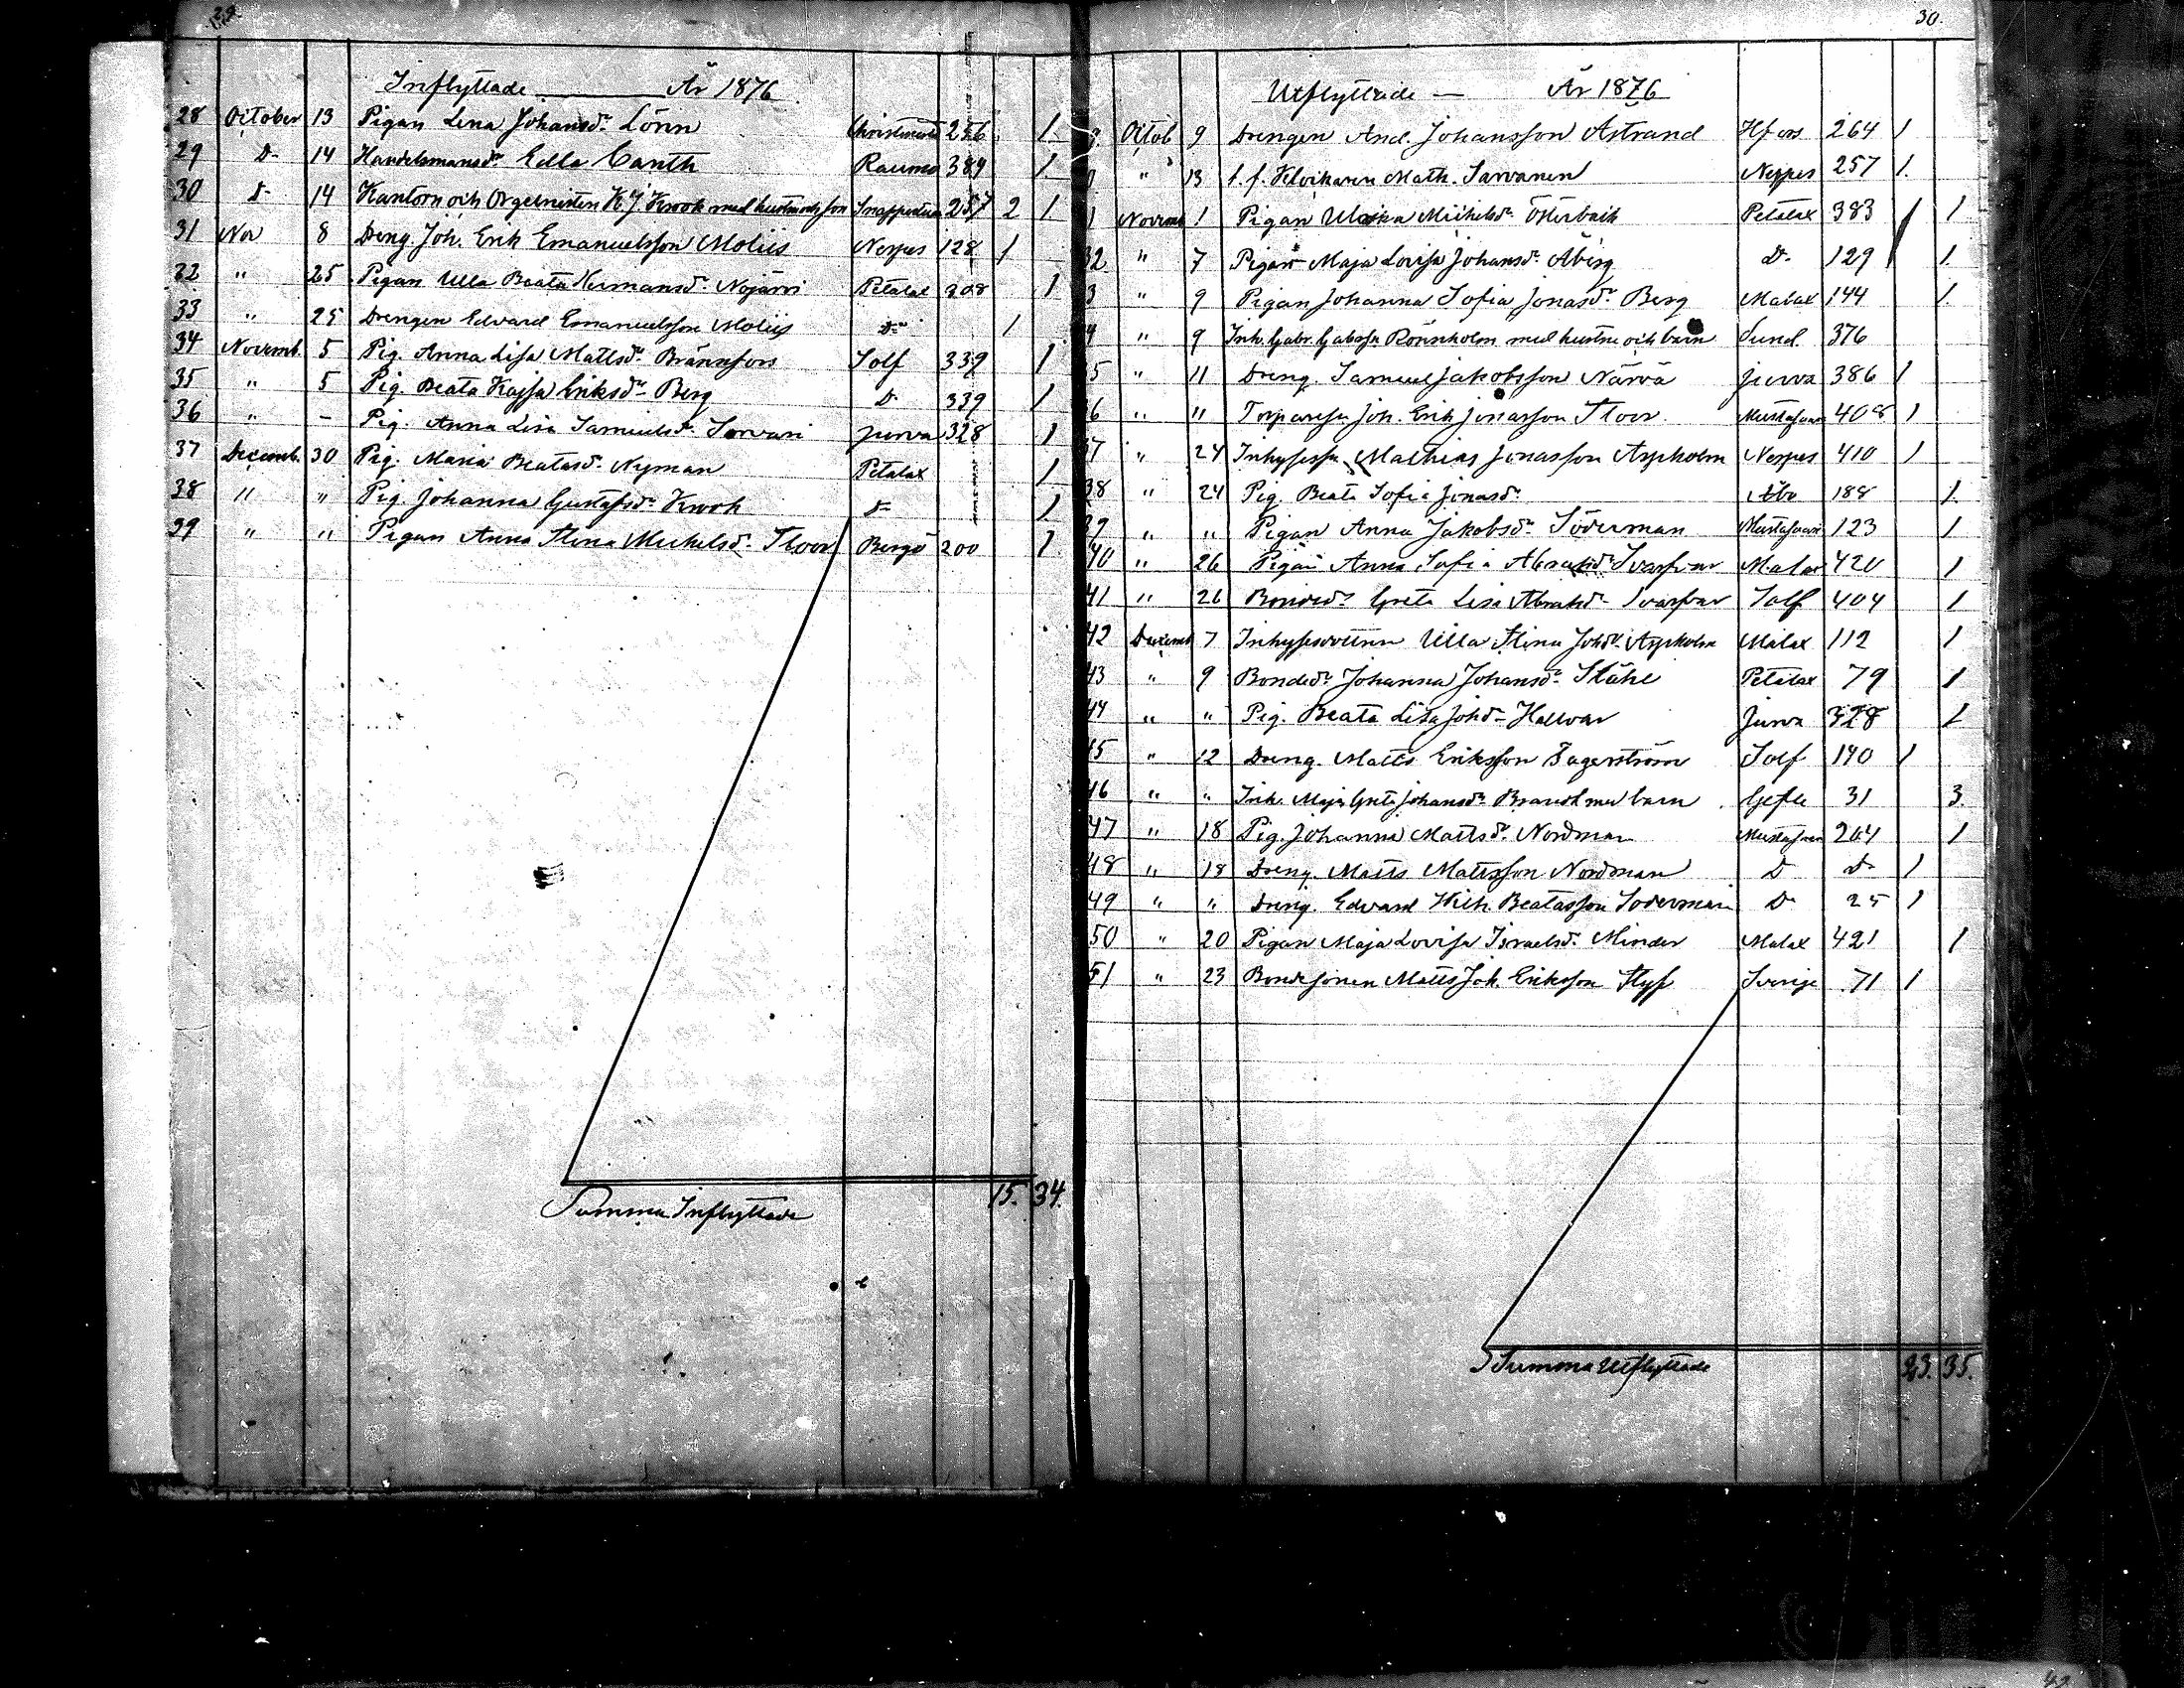 29.
Inflyttade År 1876
28 October 13 Pigan Lena Johansdr Lönn 256 1
29 Do 14 Handelsmansdr Edla Canth Raumo 384 1
30 Do 14 Kantorn och Orgelnisten K. J. Krook med hustru och son 257 2 1
31 Nov 8 Dreng Joh. Erik Emanuelsson Moliis Nerpes 128 1
32 " 25 Pigan Ulla Beata Hermansdr Nojärvi Petalax 308 1
33 " 25 Drengen Edvard Emanuelsson Moliis Do 1
34 Novemb. 5 Pig. Anna Lisa Mattsdr Brännfors Solf 339 1
35 " 5 Pig. Beata Kajsa Eriksdr Berg Do 339 1
36 " - Pig. Anna Lisa Samuelsdr Jurva 328 1
37 Decemb. 30 Pig. Maria Beatasdr Nyman Petalax 1
38 " " Pig. Johanna Gustafsdr Krook Do 1
39 " " Pigan Anna Stina Michelsdr Stoor Bergö 200 1
Summa Inflyttade 15. 34.
30.
Utflyttade - År 1876
Octob 9 Drengen And. Johansson Åstrand Hfors 264 1
" 13 Math. Sarvanen Nerpes 257 1.
1 Novemb 1 Pigan Michelsdr Österback Petalax 383 1
32 " 7 Pigan Maja Lovisa Johansdr Åberg Do 129 1.
3 " 9 Pigan Johanna Sofia Jonasdr Berg Malax 144 1.
4 " 9 Inh. Gabr. Gabrssn Rönnholm med hustru och barn Sund. 376
5 " 11 Dreng. Samuel Jakobsson Närvä Jurva 386 1
6 " 11 Joh. Erik Jonasson Stoor Mustasaari 408 1
37 " 24 Mathias Jonasson Aspholm Nerpes 410 1
38 " 24 Pig. Beata Sofia Jonasdr Åbo 188 1.
39 " " Pigan Anna Jakobsdr Söderman Mustasaari 123 1
40 " 26 Pigan Anna Sofia Abrahdr Svarfvar Malax 420 1
41 " 26 Bondedr Greta Lisa Abrahdr Svarfvar Solf 404 1
42 Decemb 7 Ulla Stina Johdr Aspholm Malax 112 1
43 " 9 Bondedr Johanna Johansdr Ståhl Petalax 79 1
44 " " Pig. Beata Lisa Johdr Hallvar Jurva 328 1
45 " 12 Dreng. Matts Eriksson Fagerström Solf 140 1
46 " " Inh. Maja Greta Johansdr med barn Gefle 31 3.
47 " 18 Pig. Johanna Mattsdr Nordman Mustasaari 204 1
48 " 18 Dreng. Matts Mattsson Nordman Do Do 1
49 " " Dreng. Edvard Wilh. Beatasson Söderman Do 25 1
50 " 20 Pigan Maja Lovisa Israelsdr Minder Malax 421 1
51 " 23 Bondesonen Matts Joh. Eriksson Styf Sverige 71 1
Summa Utflyttade 23. 35.